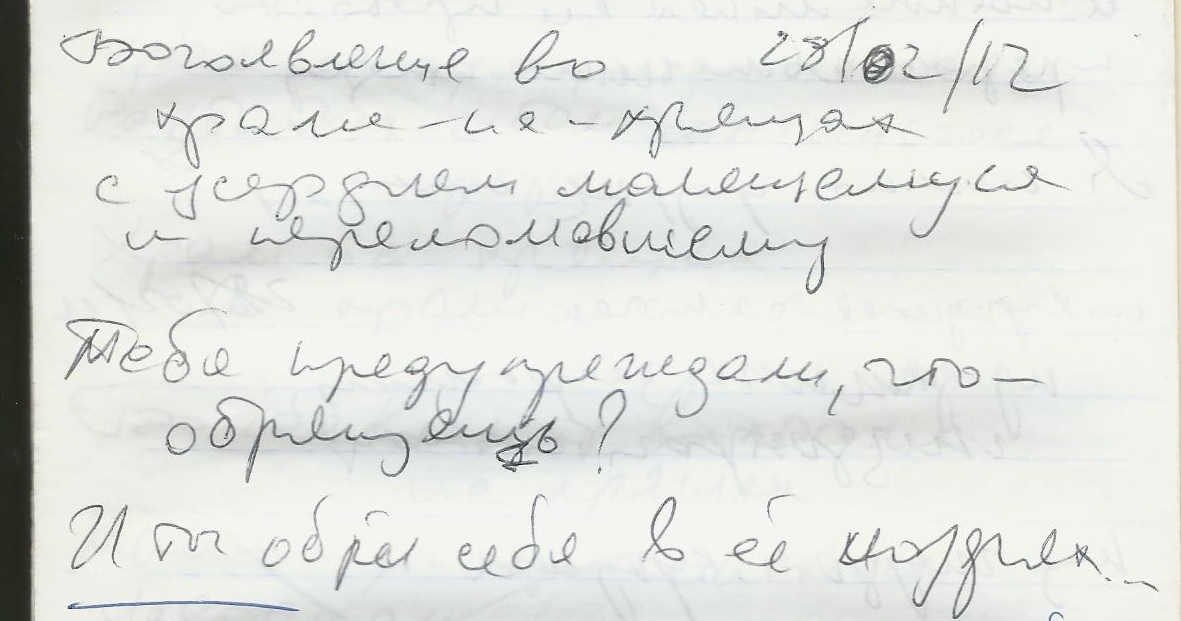 Богоявление во 28/02/12
храме-на-хрящах
с усердием молящемуся
и переломавшему
Тебя предупреждали, что-
обрящешь?
И ты обрёл себя в её ноздрях...